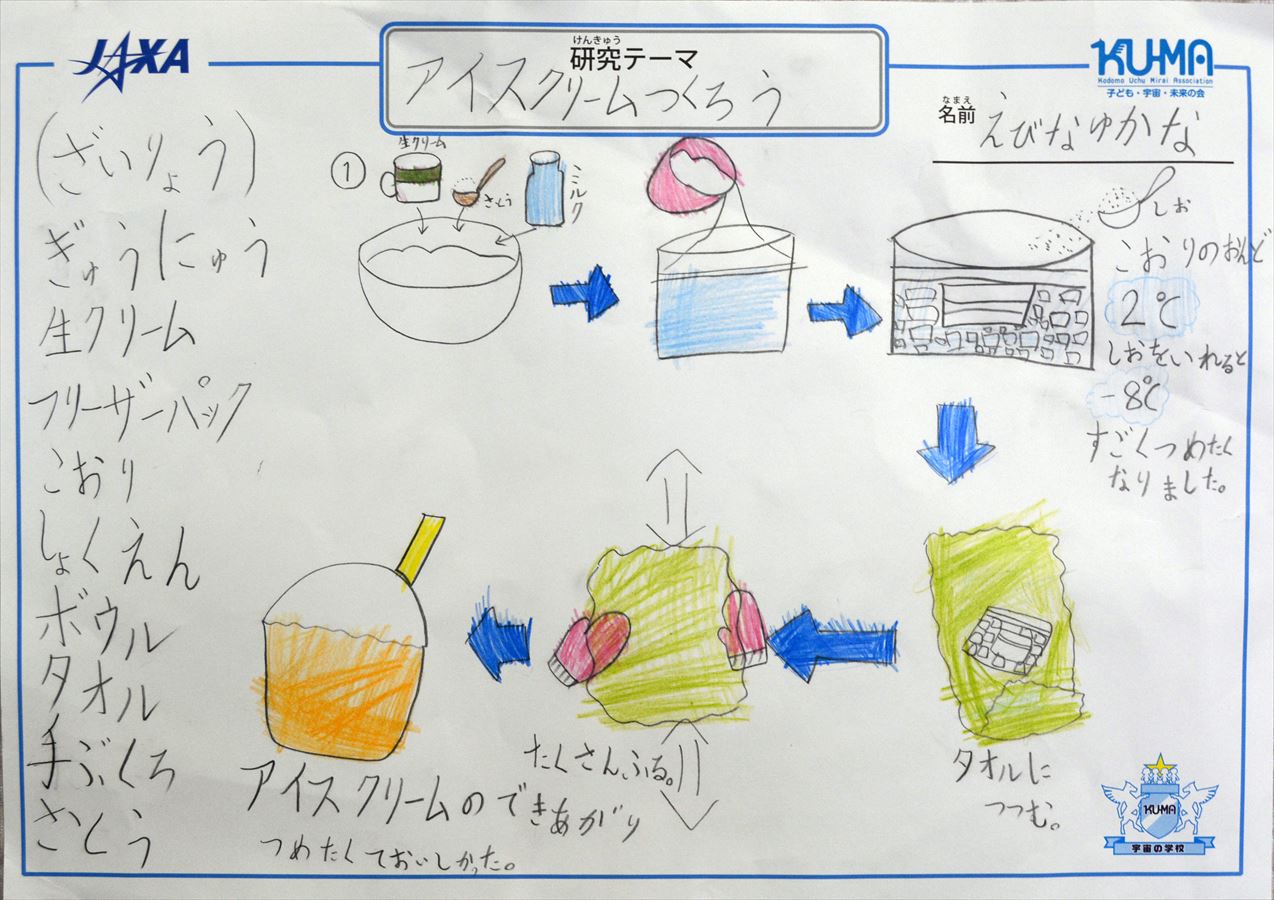 JAXA
けんきゅう
研究テーマ
アイスクリームつくろう
KU-MA
Kodomo Uchu Mirai Association
子ども・宇宙・未来の会
なまえ
名前
えびなゆかな
(ざいりょう)
ぎゅうにゅう
生クリーム
フリーザーパック
こおり
しょくえん
ボウル
タオル
手ぶくろ
さとう
①
生クリーム
さとう
ミルク
しお
こおりのおんど
2℃
しおをいれると
-8℃
すごくつめたく
なりました。
タオルに
つつむ。
たくさんふる。
アイスクリームのできあがり
つめたくておいしかった。
KU-MA
宇宙の学校